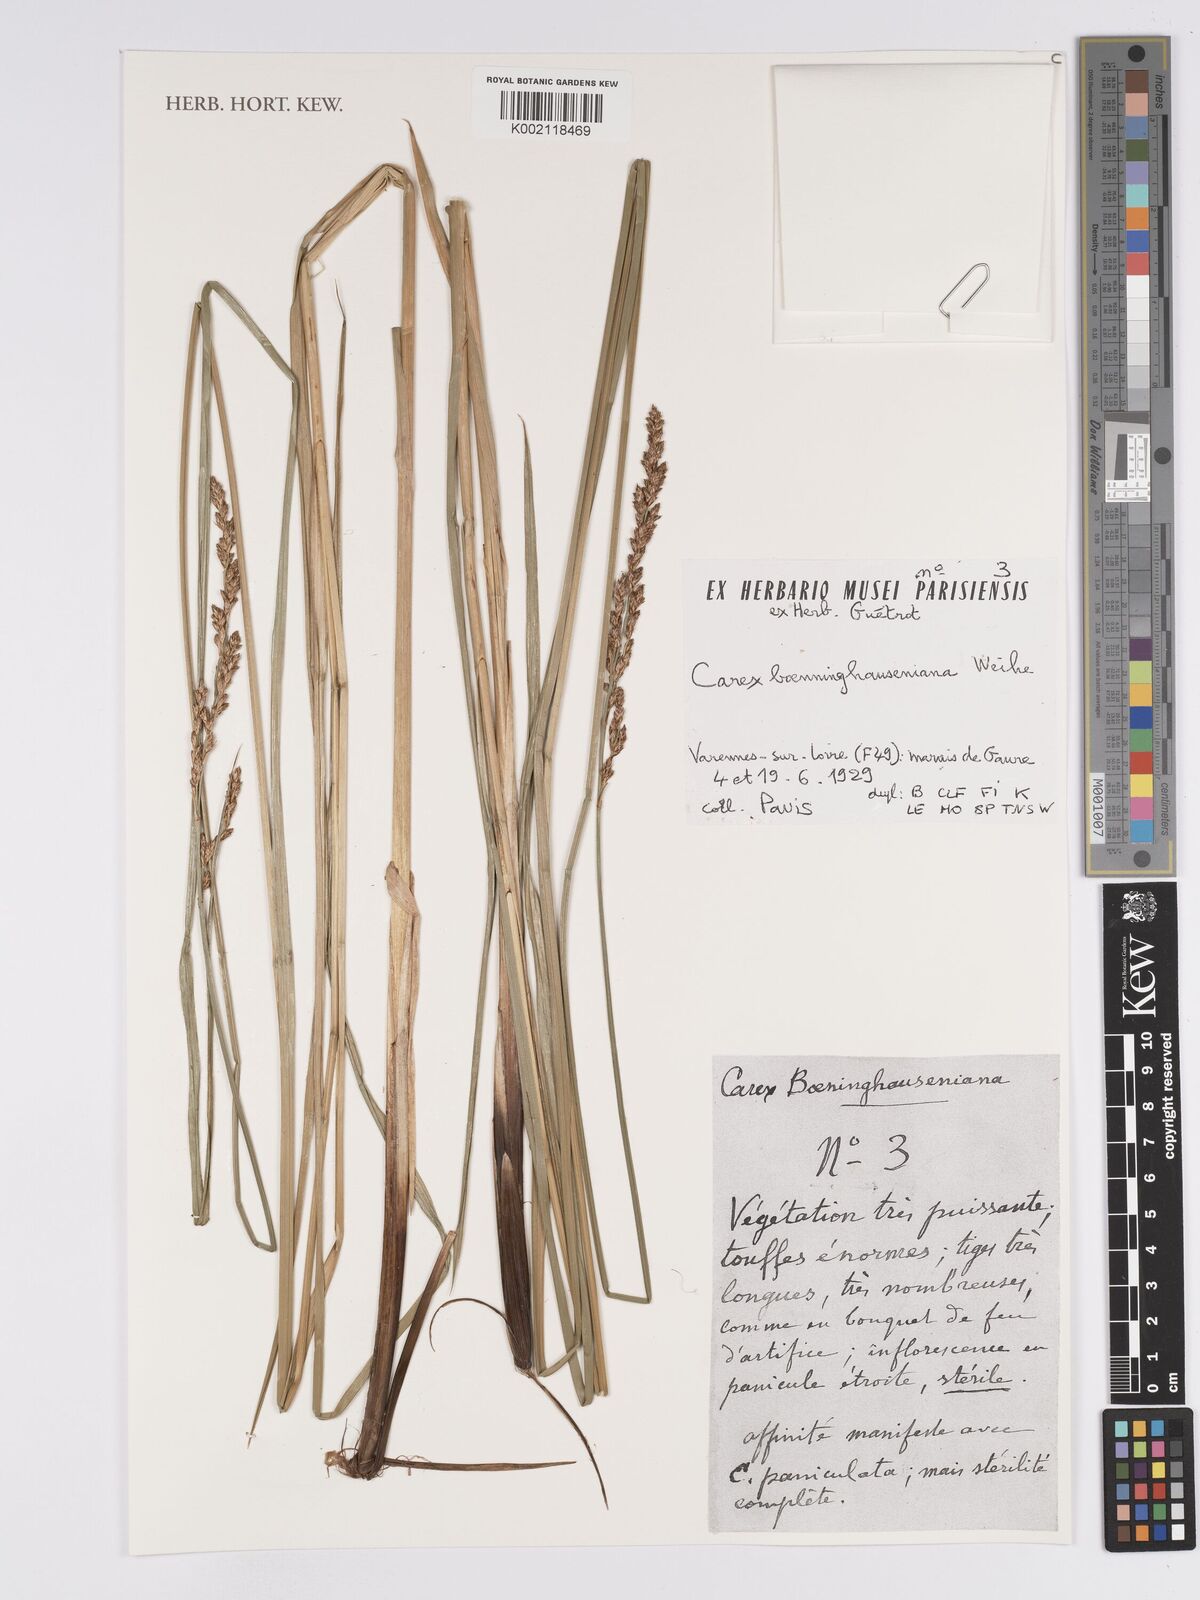 ROYAL BOTANIC GARDENS KEW
K002118469
HERB. HORT. KEW.
nº 3
EX HERBARIO MUSEI PARISIENSIS
ex Herb. Guétrot
Carex bœnninghauseniana Weihe
Varennes-sur-Loire (F49): marais de Gaure
4 et 19.6.1929
dupl: B CLF FI K
coll. Pavis
LE MO SP TNS W
Carex Bœninghauseniana
Nº 3
Végétation très puissante;
touffes énormes; tiges très
longues, très nombreuses,
comme en bouquet de feu
d'artifice; inflorescence en
panicule étroite, stérile.
affinité manifeste avec
C. paniculata; mais stérilité
complète.
inches
centimetres
Density
Don Williams
M001007
Royal Botanic Gardens
Kew
copyright reserved
0 1 2 3 4 5 6 7 8 9 10
cm